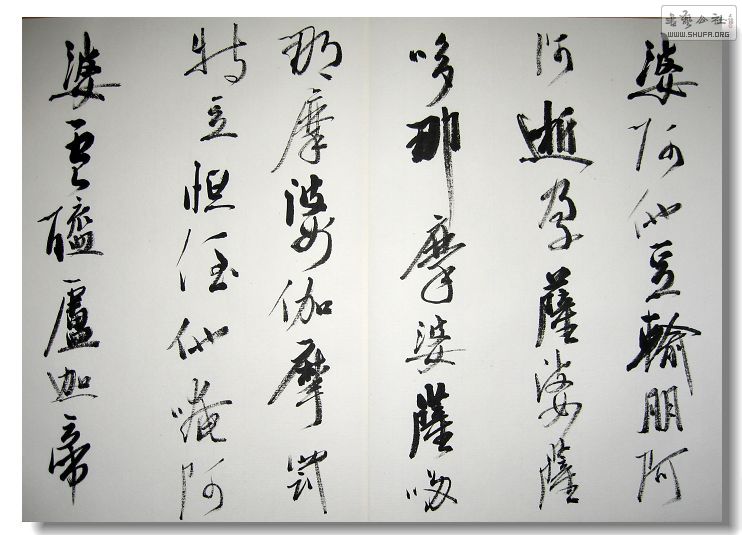 婆阿他豆輸朋阿
阿逝孕薩婆薩
哆那摩婆薩哆
那摩婆伽摩罰
特豆怛侄他唵阿
婆醯盧迦帝
书艺公社
WWW.SHUFA.ORG